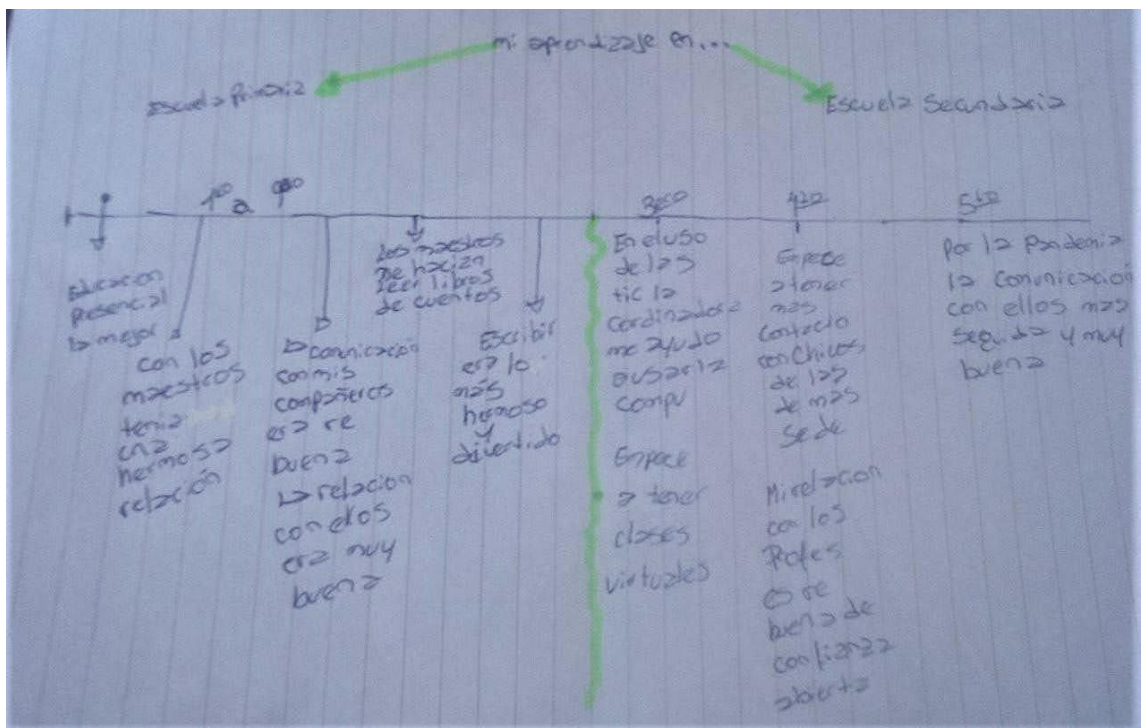 mi aprendizaje en...
Escuela Primaria
Escuela Secundaria
1ro a 9no
Educacion
presencial
la mejor
con los
maestros
tenia
una
hermosa
relación
la comunicación
con mis
compañeros
era re
buena
la relacion
con ellos
era muy
buena
Los maestros
me hacian
leer libros
de cuentos
Escribir
era lo
más
hermoso
y
divertido
3ero
En el uso
de las
tic la
cordinadora
me ayudo
a usar la
compu
Empece
a tener
clases
virtuales
4to
Empece
a tener
mas
contacto
con chicos
de las
demas
sede
Mi relacion
con los
Profes
es re
buena de
confianza
abierta
5to
Por la Pandemia
la comunicación
con ellos mas
seguida y muy
buena